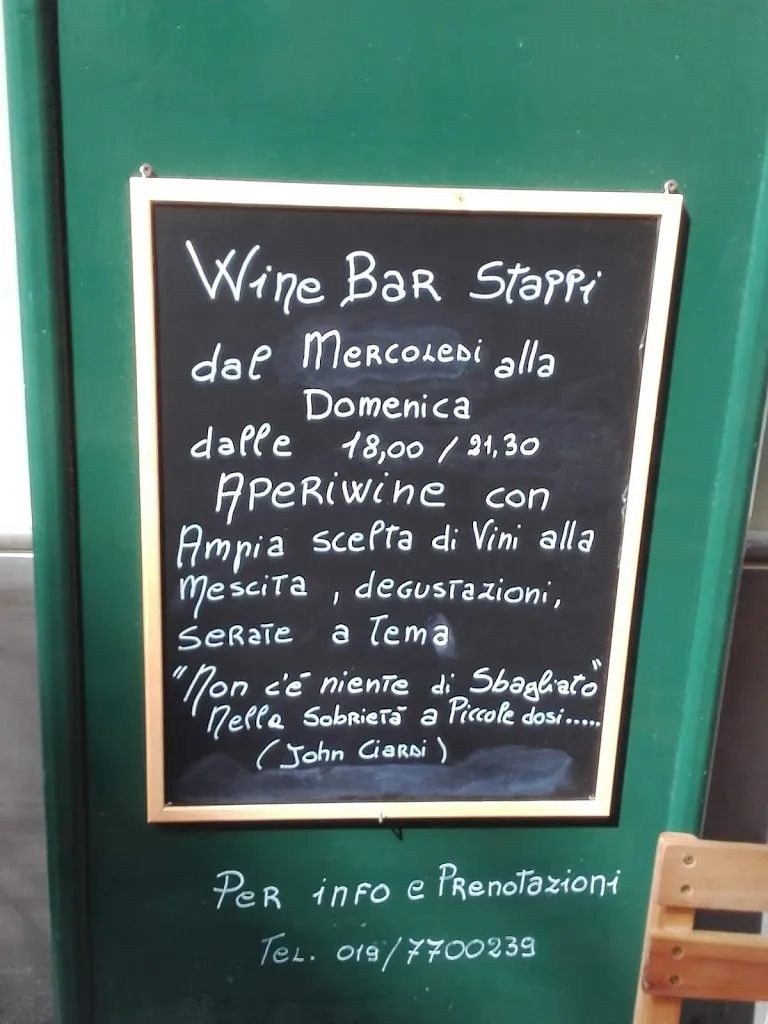 Wine Bar Stappi
dal Mercoledi alla
Domenica
dalle 18,00 / 21,30
Aperiwine con
Ampia scelta di Vini alla
Mescita , degustazioni,
serate a Tema
"Non c'è niente di Sbagliato"
Nella Sobrietà a Piccole dosi.....
(John Ciardi)
Per info e Prenotazioni
Tel. 019/7700239